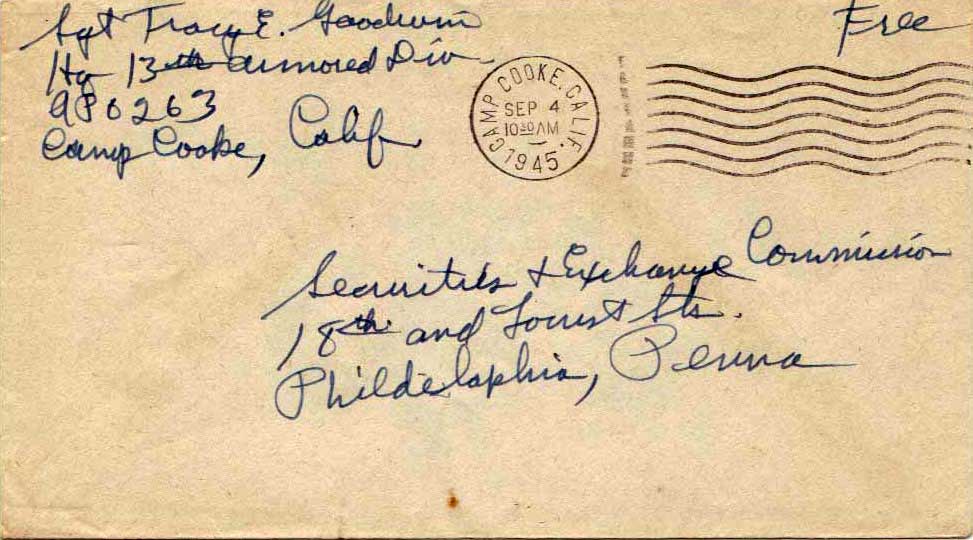 Sgt Tracy E. Goodwin
Free
Hq 13th Armored Div.
APO 263
Camp Cooke, Calif
CAMP COOKE, CALIF.
SEP 4
10 30 AM
1945
Securities & Exchange Commission
18th and Locust Sts.
Phildelaphia, Penna